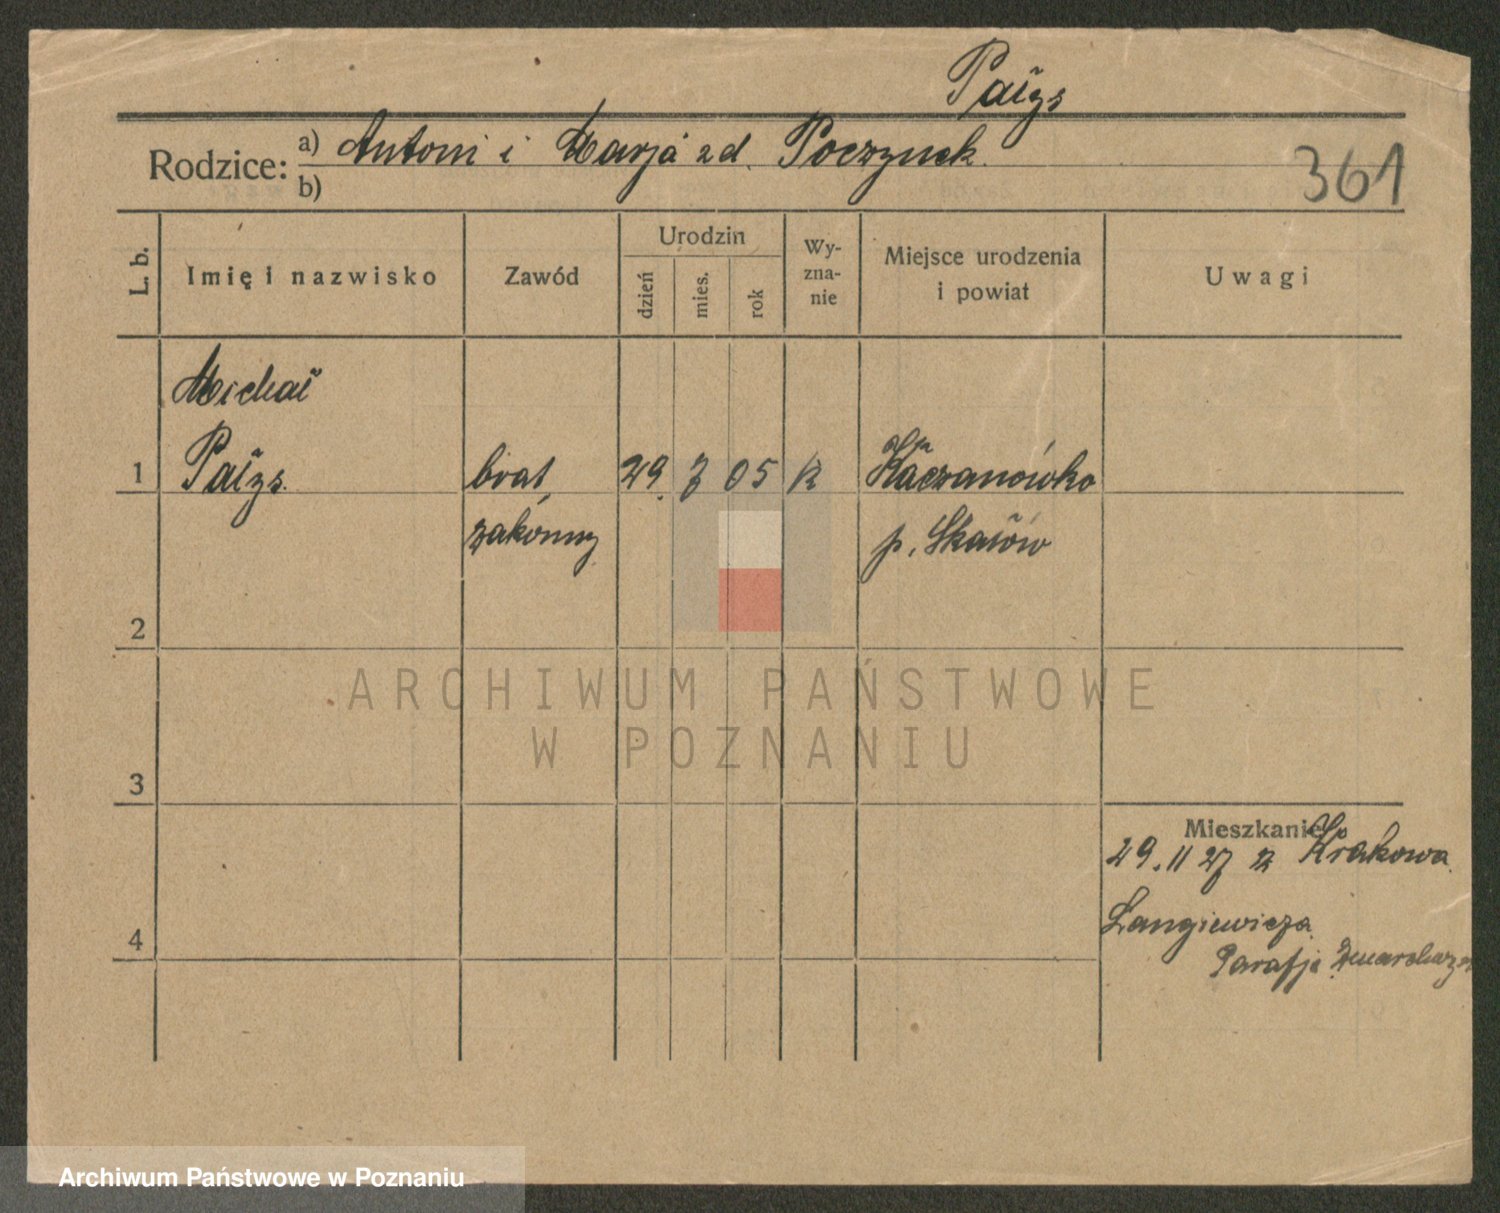 Pałys
Rodzice: a) Antoni i Marja zd. Poczynek.
b)
361
L. b.
Imię i nazwisko
Zawód
Urodzin
dzień
mies.
rok
Wy-
zna-
nie
Miejsce urodzenia
i powiat
Uwagi
Michał
1 Pałys. brat 29. 7 05 R Kaczanówko
zakonny p. Skałow
2
ARCHIWUM PAŃSTWOWE
W POZNANIU
3
Mieszkanie
29. 11 27 z Krakowa
Langiewicza.
4
Parafja
Archiwum Państwowe w Poznaniu